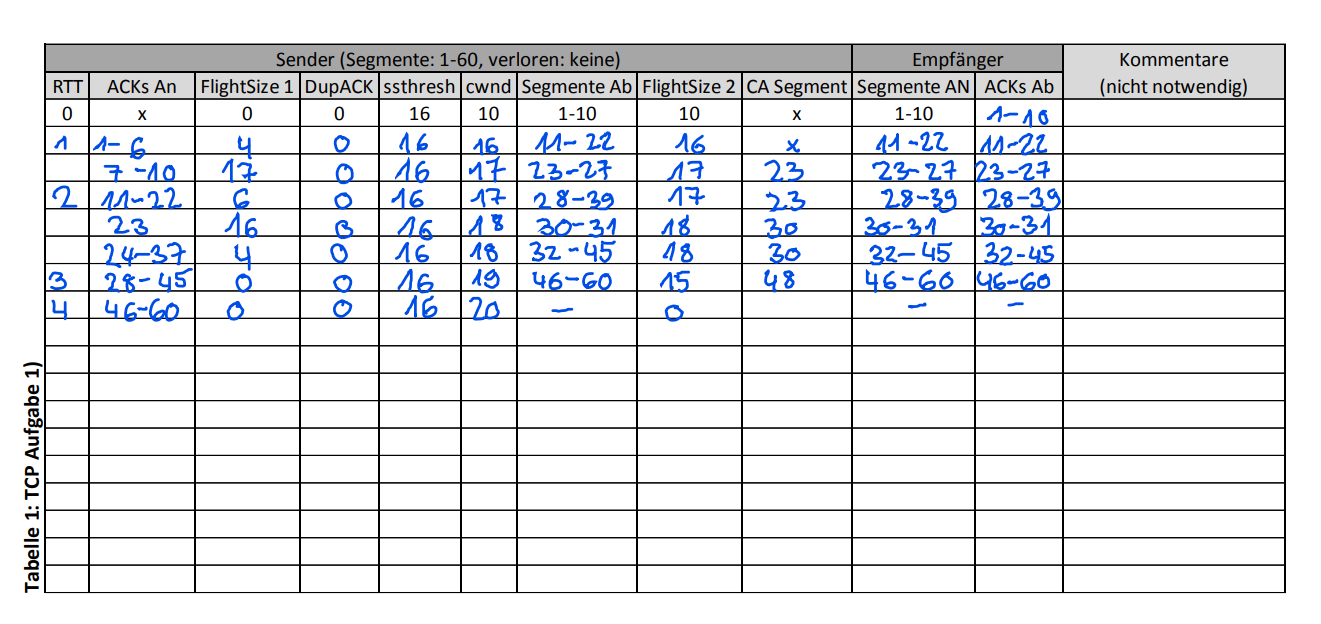 Sender (Segmente: 1-60, verloren: keine) Empfänger Kommentare
RTT ACKs An FlightSize 1 DupACK ssthresh cwnd Segmente Ab FlightSize 2 CA Segment Segmente AN ACKs Ab (nicht notwendig)
0 x 0 0 16 10 1-10 10 x 1-10 1-10
1 1-6 4 0 16 16 11-22 16 x 11-22 11-22
7-10 17 0 16 17 23-27 17 23 23-27 23-27
2 11-22 6 0 16 17 28-39 17 23 28-39 28-39
23 16 16 18 30-31 18 30 30-31 30-31
24-37 4 0 16 18 32-45 18 30 32-45 32-45
3 28-45 0 0 16 19 46-60 15 48 46-60 46-60
4 46-60 0 0 16 20 - 0 - -
Tabelle 1: TCP Aufgabe 1)